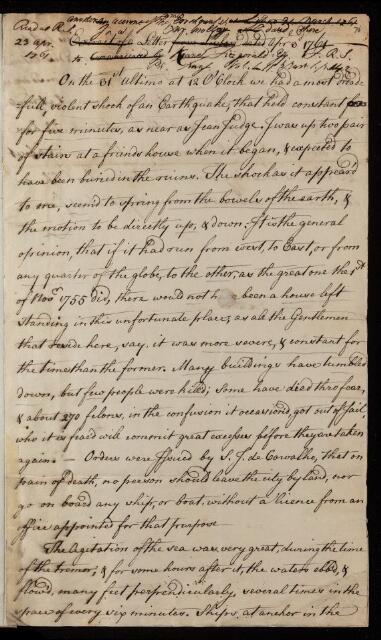 Read at R.S.
23 apr.
1761.
Another account of the Earthquake at Lisbon 31 March 1761
Extract of a Letter dated apr. 3 1761
to Fitzgerald Esq. F.R.S.
On the 31st ultimo at 12 O'Clock we had a most dread-
-full violent shock of an Earthquake, that held constant
for five minutes, as near as I can Judge. I was up two pair
of stairs at a friends house when it began, & expected to
have been buried in the ruins. The shock as it appeard
to me, seemd to spring from the bowels of the earth, &
the motion to be directly up, & down. It is the general
opinion, that if it had run from west, to East, or from
any quarter of the globe, to the other, as the great one the 1st
of Novr 1755 did, there would not have been a house left
standing in this unfortunate place, as all the Gentlemen
that reside here, say, it was more severe, & constant for
the time than the former. Many buildings have tumbled
down, but few people were killd; some have died thro fear,
& about 270 felons, in the confusion it occasiond, got out of Jail,
who it is feard will commit great excesses before they are taken
again — Orders were Issued by S. J. de Carvalho, that on
pain of death, no person should leave the city by land, nor
go on board any ship, or boat, without a licence from an
office appointed for that purpose
The Agitation of the sea was very great, during the time
of the tremor; & for some hours after it, the waters ebb'd, &
flowd, many feet perpendicularly, several times in the
space of every six minutes. Ships, at anchor in the